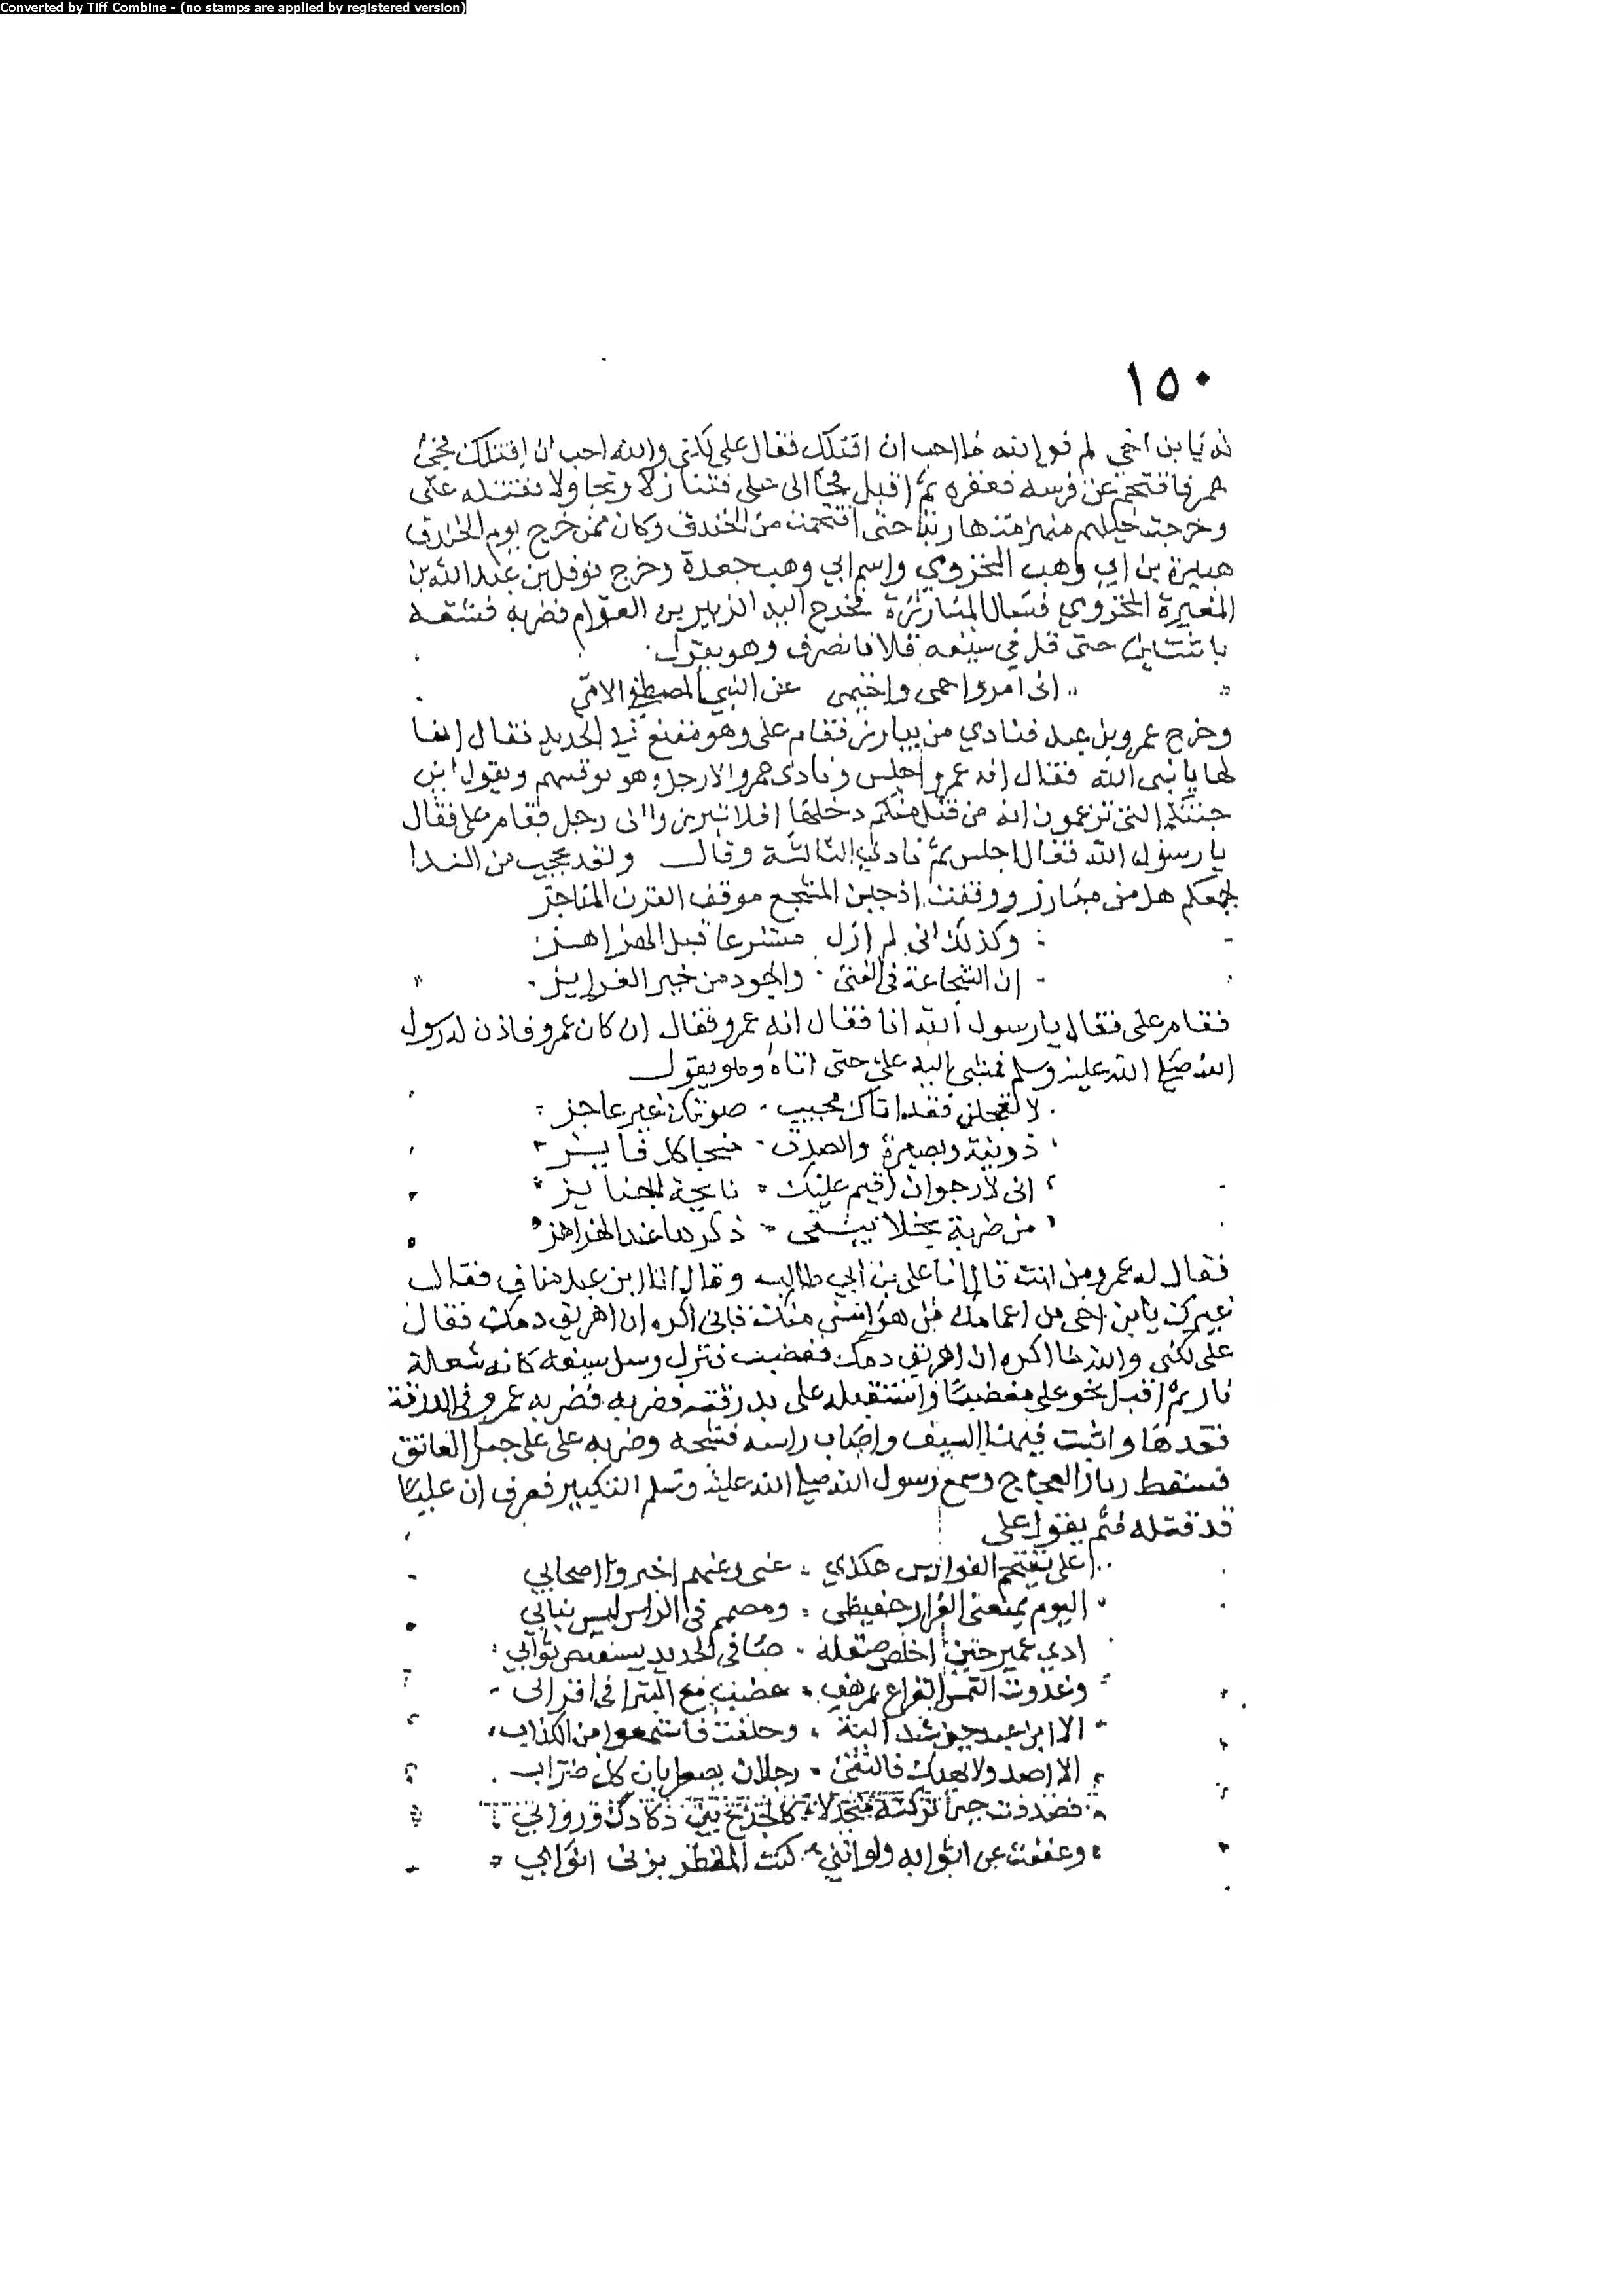 Converted by Tiff Combine - (no stamps are applied by registered version)
١٥٠
له يا بن اخي لم فوالله ما احب ان اقتلك فقال علي لكني والله احب ان اقتلك فحمي
عمر فاقتحم عن فرسه فعقره ثم اقبل فجا الى على فتنازلا وتجاولا فقتله على
وخرجت خيلهم منهزمة هاربة حتى اقتحمت من الخندق وكان ممن خرج يوم الخندق
هبيرة بن ابي وهب المخزومي واسم ابي وهب جعدة وخرج نوفل بن عبد الله بن
المغيرة المخزومي فسال المبارزة فخرج اليه الزبير بن العوام فضربه فشقه
باثنتين حتى فل في سيفه فلا فانصرف وهو يقول
انى امروا حمى واحتمى عن النبي المصطفى الامي
وخرج عمرو بن عبد فنادي من يبارز فقام على وهو مقنع في الحديد فقال انا
لها يا نبى الله فقال انه عمرو اجلس ونادى عمرو الا رجل وهو يونبهم ويقول اين
جنتكم التى تزعمون انه من قتل منكم دخلها افلا تبرزوا الى رجل فقام على فقال
يا رسول الله فقال اجلس ثم نادي الثالثة وقال ولقد بححت من الندا
لجمعكم هل من مبارز ووقفت اذ جبن المشجع موقف القرن المناجز
وكذلك انى لم ازل متسرعا قبل الهزاهز
ان الشجاعة فى الفتى والجود من خير الغرايز
فقام على فقال يا رسول الله انا فقال انه عمرو فقال ان كان عمرو فاذن له رسول
الله صلى الله عليه وسلم فمشى اليه على حتى اتاه وهو يقول
لا تعجلن فقد اتاك مجيب صوتك غير عاجز
ذو نية وبصيرة والصدق منجا كل فايز
انى لارجوا ان اقيم عليك نايحة الجنايز
من ضربة نجلا يبقى ذكرها عند الهزاهز
فقال له عمرو من انت قال انا على بن ابي طالب وقال انا ابن عبد مناف فقال
غيرك يا بن اخى من اعمامك من هو اسن منك فانى اكره ان اهريق دمك فقال
على لكنى والله ما اكره ان اهريق دمك فغضب فنزل وسل سيفه كانه شعلة
نار ثم اقبل نحو على مغضبا واستقبله على بدرقته فضربه فضربه عمرو فى الدرقة
فقدها واثبت فيها السيف واصاب راسه فشجه وضربه على على حبل العاتق
فسقط وثار العجاج وسمع رسول الله صلى الله عليه وسلم التكبير فعرف ان عليا
قد قتله فثم يقول على
اعلى تقتحم الفوارس هكذي عنى وعنهم اخروا اصحابي
اليوم يمنعنى الفرار حفيظى ومصمم فى الراس ليس بنابي
ادي عمير حين اخلص صقله صافى الحديد يستفيض ثوابي
وغدوت التمس القراع بمرهف عضب مع البترا فى اقرابى
الا ابن عبد حين شد الية وحلفت فاستمعوا من الكذاب
الا اصد ولا يهلك فالتقى رجلان يضربان كل ضراب
فصددت حين تركته متجدلا كالجذع بين دكادك وروابي
وعففت عن اثوابه ولو اننى كنت المقطر بزنى اثوابي